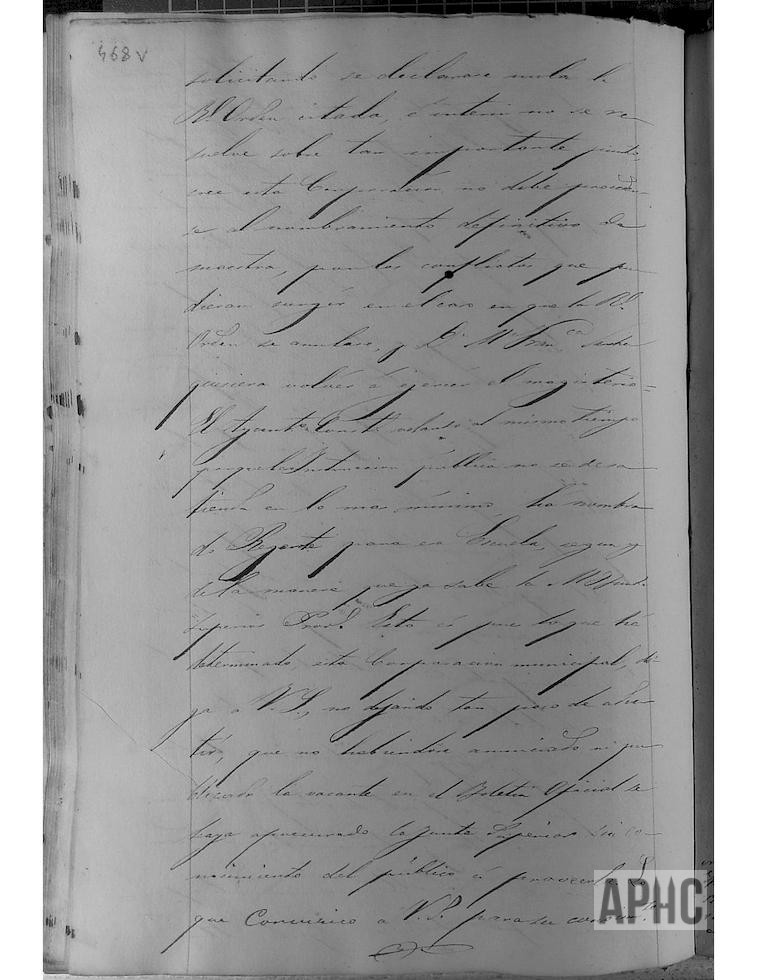 468 v
solicitando se declarase nula la
Rl. Orden citada, é interin no se re-
suelve sobre tan importante punto,
cree esta Corporacion, no debe proceder-
se al nombramiento definitivo de
maestra, por los conflictos que pu-
dieran surgir en el caso en que la Rl.
Orden se anulase, y Dª Mª Franca
quisiera volver á ejercer el magisterio=
El Ayuntº Constl. velando al mismo tiempo
porque la Instruccion pública no se desa-
tienda en lo mas minimo, ha nombra
do Regente para esa Escuela, segun y
de la manera que ya sabe la Junta
Superior Provl. Esto es pues lo que há
determinado esta Corporacion municipal, di-
ga a V.S., no dejando tan poco de adver-
tir, que no habiendose anunciado ni pu-
blicado la vacante en el Boletin Oficial se
haya apresurado la Junta Superior sin co-
nocimiento del público á proveerla. Lo
que comunico a V.S. para su
APHC